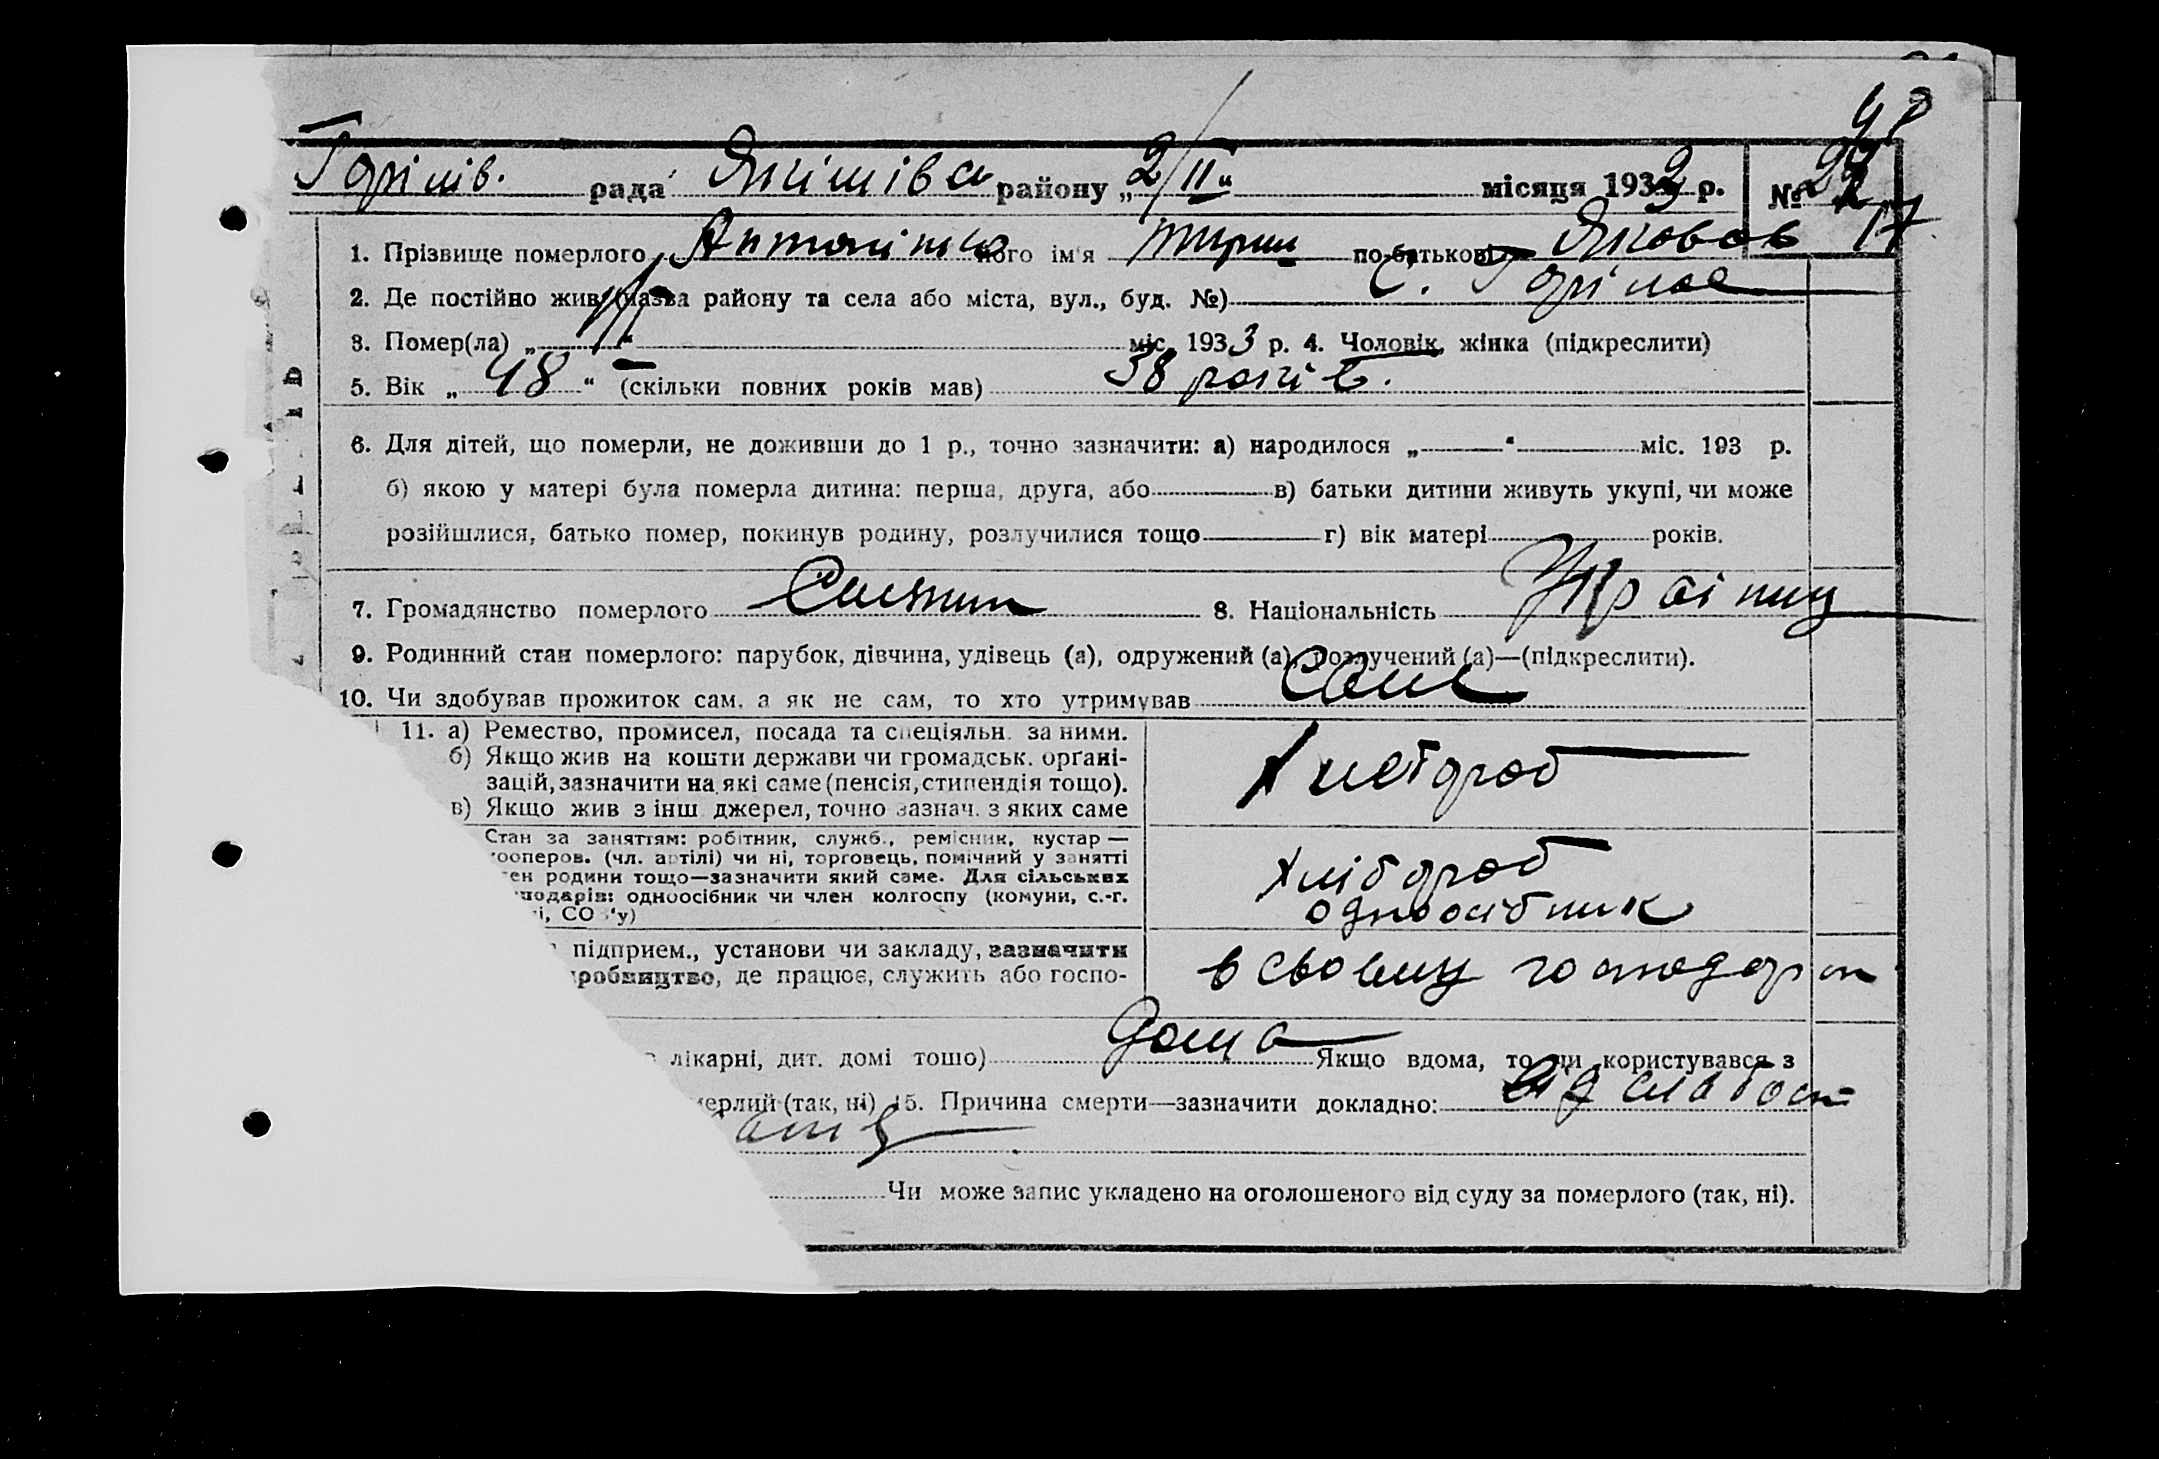 рада району „2/II“ місяця 1933 р. №
1. Прізвище померлого його ім'я по-батькові Яковов
2. Де постійно жив (назва району та села або міста, вул., буд. №) с.
3. Помер(ла) „ “ міс. 1933 р. 4. Чоловік, жінка (підкреслити)
5. Вік „48“ (скільки повних років мав) 38 років.
6. Для дітей, що померли, не доживши до 1 р., точно зазначити: а) народилося „ “ міс. 193 р.
б) якою у матері була померла дитина: перша, друга, або в) батьки дитини живуть укупі, чи може
розійшлися, батько помер, покинув родину, розлучилися тощо г) вік матері років.
7. Громадянство померлого 8. Національність Українц
9. Родинний стан померлого: парубок, дівчина, удівець (а), одружений (а), розлучений (а)—(підкреслити).
10. Чи здобував прожиток сам, а як не сам, то хто утримував Сам
11. а) Ремество, промисел, посада та спеціяльн. за ними.
б) Якщо жив на кошти держави чи громадськ. орґані-
зацій, зазначити на які саме (пенсія, стипендія тощо).
в) Якщо жив з інш. джерел, точно зазнач. з яких саме
Хлібороб
Стан за заняттям: робітник, служб., ремісник, кустар —
ооперов. (чл. артілі) чи ні, торговець, помічний у занятті
ен родини тощо—зазначити який саме. Для сільських
подарів: одноосібник чи член колгоспу (комуни, с.-г.
і, СОЗ'у)
Хлібороб
одноосібник
підприєм., установи чи закладу, зазначити
робництво, де працює, служить або госпо-
в своему господар
лікарні, дит. домі тощо) дома Якщо вдома, то чи користувався з
мерлий (так, ні) 15. Причина смерти—зазначити докладно: від слабост
Чи може запис укладено на оголошеного від суду за померлого (так, ні).